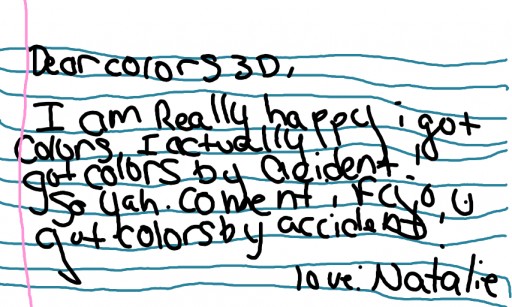 Dear colors 3D,
I am Really happy i got
colors. I actually
got colors by acident!
So yah. Coment, if u
got colors by accident!
love: Natalie